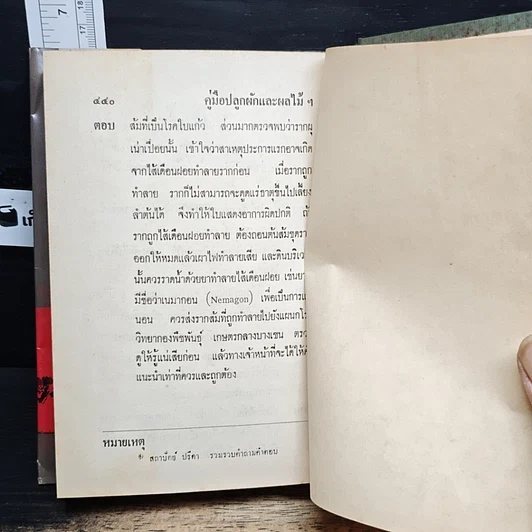 ๔๔๐ คู่มือปลูกผักและผลไม้ ฯ
ตอบ ส้มที่เป็นโรคใบแก้ว ส่วนมากตรวจพบว่ารากผุ
เน่าเปื่อยนั้น เข้าใจว่าสาเหตุประการแรกอาจเกิด
จากไส้เดือนฝอยทำลายรากก่อน เมื่อรากถูก
ทำลาย รากก็ไม่สามารถจะดูดแร่ธาตุขึ้นไปเลี้ยง
ลำต้นได้ จึงทำให้ใบแสดงอาการผิดปกติ ถ้
รากถูกไส้เดือนฝอยทำลาย ต้องถอนต้นส้มขุดรา
ออกให้หมดแล้วเผาไฟทำลายเสีย และดินบริเว
นั้นควรราดน้ำด้วยยาทำลายไส้เดือนฝอย เช่นยา
มีชื่อว่าเนมากอน (Nemagon) เพื่อเป็นการแ
นอน ควรส่งรากส้มที่ถูกทำลายไปยังแผนกโร
วิทยากองพืชพันธุ์ เกษตรกลางบางเขน ตรว
ดูให้รู้แน่เสียก่อน แล้วทางเจ้าหน้าที่จะได้ให้ค
แนะนำเท่าที่ควรและถูกต้อง
หมายเหตุ
สถาปัตย์ ปรีดา รวมรวบคำถามคำตอบ
7
6